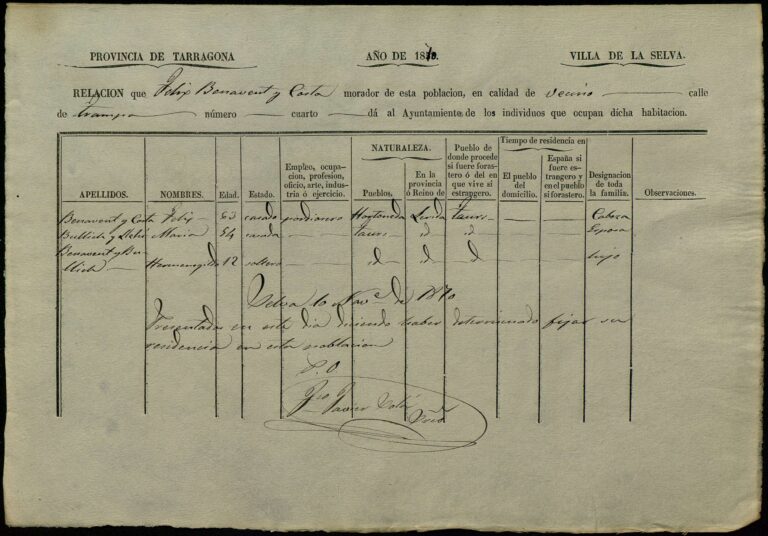 PROVINCIA DE TARRAGONA AÑO DE 1870. VILLA DE LA SELVA.
RELACION que Felix Benavent y Costa morador de esta poblacion, en calidad de vecino calle
de trampa número cuarto dá al Ayuntamiento de los individuos que ocupan dicha habitacion.
APELLIDOS. NOMBRES. Edad. Estado. Empleo, ocupacion, profesion, oficio, arte, industria ó ejercicio. NATURALEZA. Pueblos. En la provincia ó Reino de Pueblo de donde procede si fuere forastero ó del en que vive si estrangero. Tiempo de residencia en El pueblo del domicilio. España si fuere estrangero y en el pueblo si forastero. Designacion de toda la familia. Observaciones.
Benavent y Costa Felix 63 casado pordiosero Lerida Cabeza
Maria 54 casada id Esposa
Benavent y Bu-
llich Hermenegildo 12 soltero id id id hijo
Selva 6 Nov.e de 1870
Presentados en este dia diciendo haber determinado fijar su
residencia en esta poblacion
P. O.
Javier